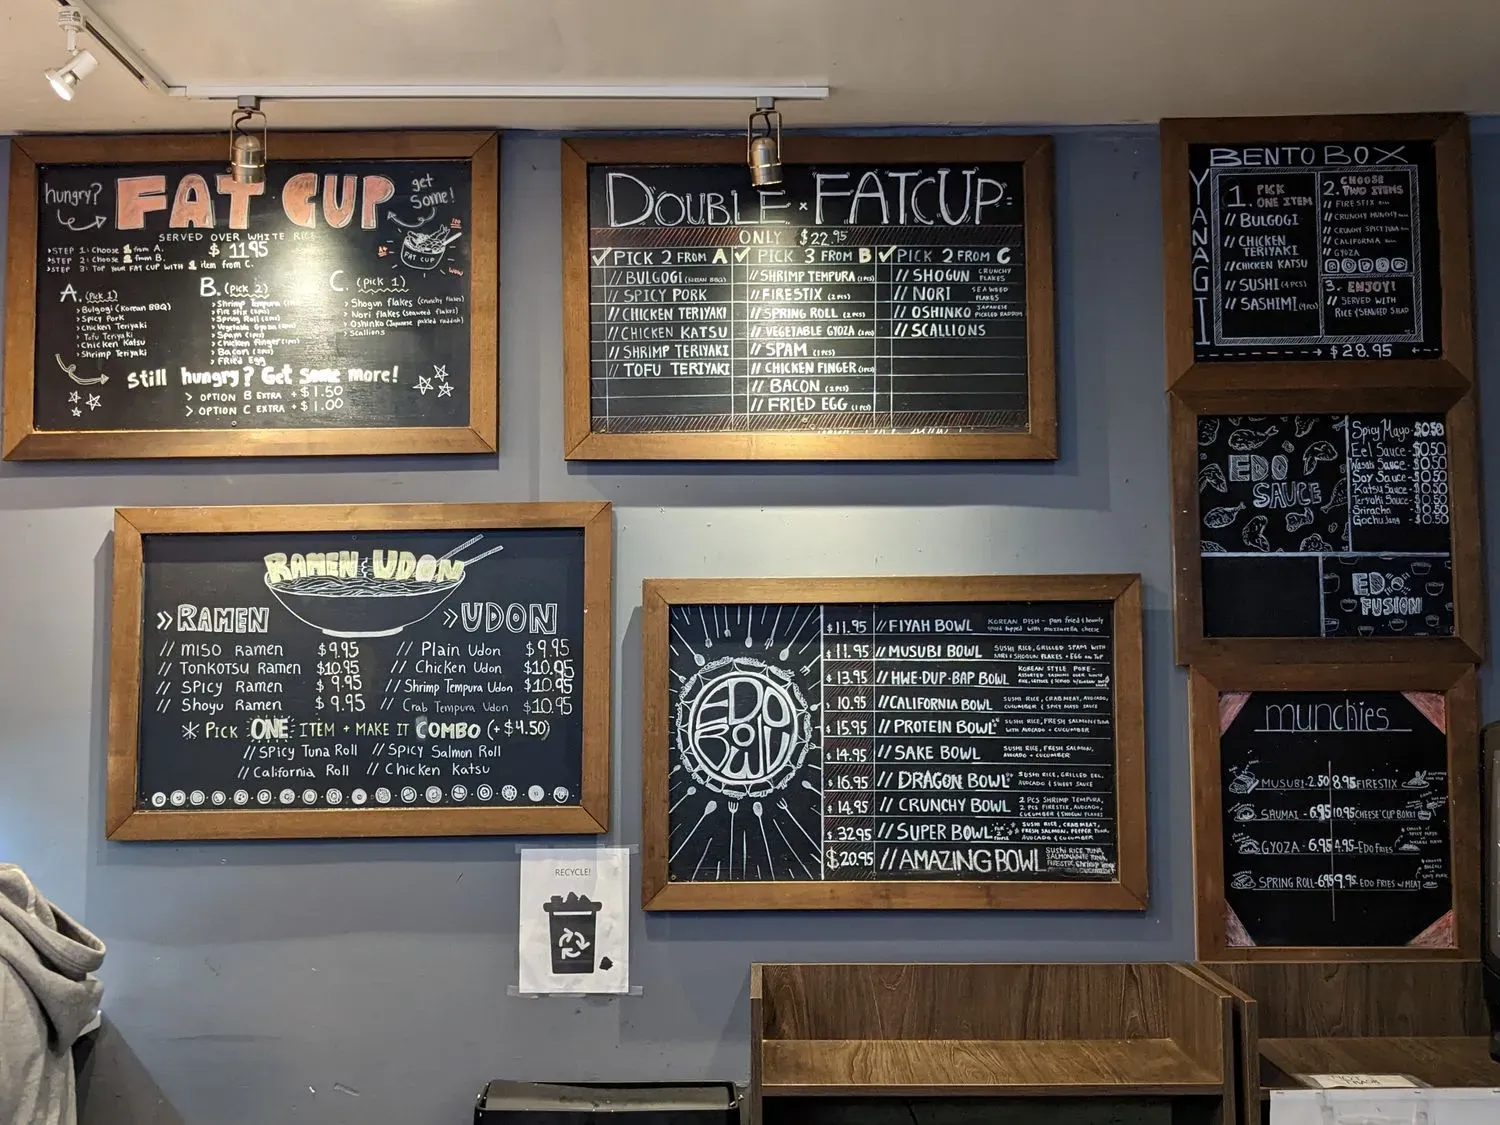 hungry?
FAT CUP
get
some!
SERVED OVER WHITE RICE
$ 11.95
STEP 1: Choose 1 from A.
STEP 2: Choose 2 from B.
STEP 3: TOP YOUR FAT CUP WITH 1 item from C.
FAT CUP
A. (Pick 1)
> Bulgogi (Korean BBQ)
> Spicy Pork
> Chicken Teriyaki
> Tofu Teriyaki
> Chicken Katsu
> Shrimp Teriyaki
B. (pick 2)
> Shrimp Tempura
> Fire stix (2pcs)
> Spring Roll (2pcs)
> Vegetable Gyoza (2pcs)
> Spam (1pc)
> Chicken finger (1pc)
> Bacon (2pcs)
> FRied Egg
C. (pick 1)
> Shogun flakes (crunchy flakes)
> Nori flakes (seaweed flakes)
> Oshinko (Japanese pickled raddish)
> Scallions
Still hungry? Get some more!
> OPTION B EXTRA + $1.50
> OPTION C EXTRA + $1.00
DOUBLE x FATCUP
ONLY $22.95
PICK 2 FROM A
// BULGOGI (KOREAN BBQ)
// SPICY PORK
// CHICKEN TERIYAKI
// CHICKEN KATSU
// SHRIMP TERIYAKI
// TOFU TERIYAKI
PICK 3 FROM B
// SHRIMP TEMPURA (1PCS)
// FIRESTIX (2PCS)
// SPRING ROLL (2PCS)
// VEGETABLE GYOZA (2PCS)
// SPAM (1PCS)
// CHICKEN FINGER (1PCS)
// BACON (2PCS)
// FRIED EGG (1PCS)
PICK 2 FROM C
// SHOGUN CRUNCHY FLAKES
// NORI SEAWEED FLAKES
// OSHINKO JAPANESE PICKLED RADDISH
// SCALLIONS
BENTO BOX
YANAGI
1. PICK
ONE ITEM
// BULGOGI
// CHICKEN
TERIYAKI
// CHICKEN KATSU
// SUSHI (4PCS)
// SASHIMI (9PCS)
2. CHOOSE
TWO ITEMS
// FIRESTIX
// CRUNCHY MUNCHY
// CRUNCHY SPICY TUNA
// CALIFORNIA
// GYOZA
3. ENJOY!
// SERVED WITH
RICE & SEAWEED SALAD
$28.95
EDO
SAUCE
Spicy Mayo - $0.50
Eel Sauce - $0.50
Wasabi Sauce - $0.50
Soy Sauce - $0.50
Katsu Sauce - $0.50
Teriyaki Sauce - $0.50
Sriracha $0.50
Gochujang $0.50
EDO
FUSION
RAMEN & UDON
» RAMEN
// MISO Ramen $9.95
// Tonkotsu Ramen $10.95
// SPICY Ramen $9.95
// Shoyu Ramen $9.95
» UDON
// Plain Udon $9.95
// Chicken Udon $10.95
// Shrimp Tempura Udon $10.95
// Crab Tempura Udon $10.95
* PICK ONE ITEM + MAKE IT COMBO (+$4.50)
// SPICY Tuna Roll // Spicy Salmon Roll
// California Roll // Chicken Katsu
EDO
BOWL
$11.95 // FIYAH BOWL KOREAN DISH - pan fried & heavily spiced topped with mozzarella cheese
$11.95 // MUSUBI BOWL SUSHI RICE, GRILLED SPAM WITH NORI & SHOGUN FLAKES + EGG on TOP
$13.95 // HWE·DUP·BAP BOWL KOREAN STYLE POKE - ASSORTED SASHIMI OVER WHITE
$10.95 // CALIFORNIA BOWL SUSHI RICE, CRABMEAT, AVOCADO, CUCUMBER & SPICY MAYO
$15.95 // PROTEIN BOWL SUSHI RICE, FRESH SALMON/TUNA WITH AVOCADO + CUCUMBER
$14.95 // SAKE BOWL SUSHI RICE, FRESH SALMON, AVOCADO + CUCUMBER
$16.95 // DRAGON BOWL SUSHI RICE, GRILLED EEL, AVOCADO & SWEET SAUCE
$14.95 // CRUNCHY BOWL 2 PCS SHRIMP TEMPURA, 2 PCS FIRESTIX, AVOCADO, CUCUMBER & SHOGUN FLAKES
$32.95 // SUPER BOWL FOR 2 PEOPLE SUSHI RICE, CRABMEAT, FRESH SALMON, PEPPER TUNA, AVOCADO & CUCUMBER
$20.95 // AMAZING BOWL SUSHI RICE TUNA,
munchies
MUSUBI - 2.50 8.95 FIRESTIX
SHUMAI - 6.95 10.95 CHEESE CUP BOKKI
GYOZA - 6.95 4.95 - EDO FRIES
SPRING ROLL - 6.95 9.95 EDO FRIES W/ MEAT
RECYCLE!